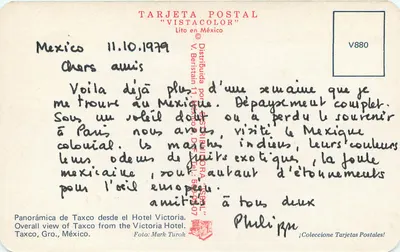 TARJETA POSTAL
"VISTACOLOR"
Lito en México
V880
Mexico 11.10.1979
Chers amis
Voila déjà plus d'une semaine que je
me trouve au Mexique. Dépaysement complet.
Sous un soleil dont on a perdu le souvenir
à Paris nous avons visité le Mexique
colonial. Les marchés indiens, leurs couleurs
leurs odeurs de fruits exotiques, la foule
mexicaine, sont autant d'étonnements
pour l'œil européen.
amitiés à tous deux
Philippe
© Distribuida por
V. Beristain 11
Panorámica de Taxco desde el Hotel Victoria.
Overall view of Taxco from the Victoria Hotel.
Taxco, Gro., México. Foto: Mark Turok
¡Coleccione Tarjetas Postales!